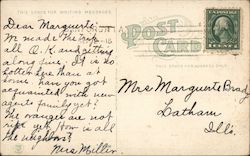 THIS SPACE FOR WRITING MESSAGES
POST CARD
THIS SPACE FOR ADDRESS ONLY
Dear Marguerte:
We made the trip
all O.K. and getting
along fine. It is no
hotter here than at
home. Have you got
acquainted with new
agents family yet?
The oranges are not
ripe yet. How is all
the neighbors?
Mrs Miller
Mrs Marguerte Brad
Latham
Ills.